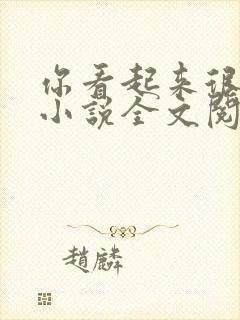 你看起来很
小说全文阅
趙麟